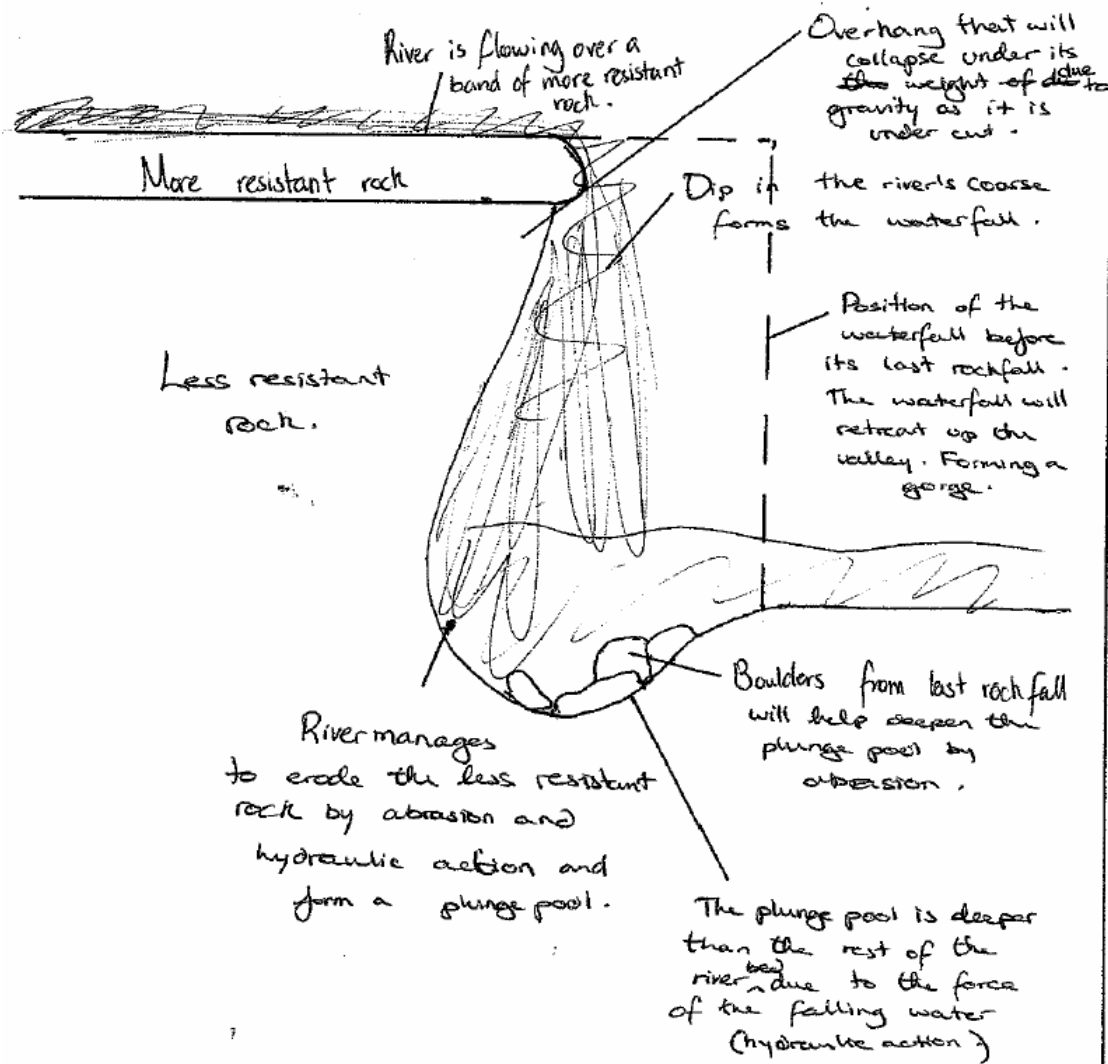 River is flowing over a
band of more resistant
rock.
Overhang that will
collapse under its
weight of due to
gravity as it is
under cut.
More resistant rock
Dip in the river's coarse
forms the waterfall.
Position of the
waterfall before
its last rockfall.
The waterfall will
retreat up the
valley. Forming a
gorge.
Less resistant
rock.
Boulders from last rock fall
will help deepen the
plunge pool by
abrasion.
River manages
to erode the less resistant
rock by abrasion and
hydraulic action and
form a plunge pool.
The plunge pool is deeper
than the rest of the
river bed due to the force
of the falling water
(hydraulic action)